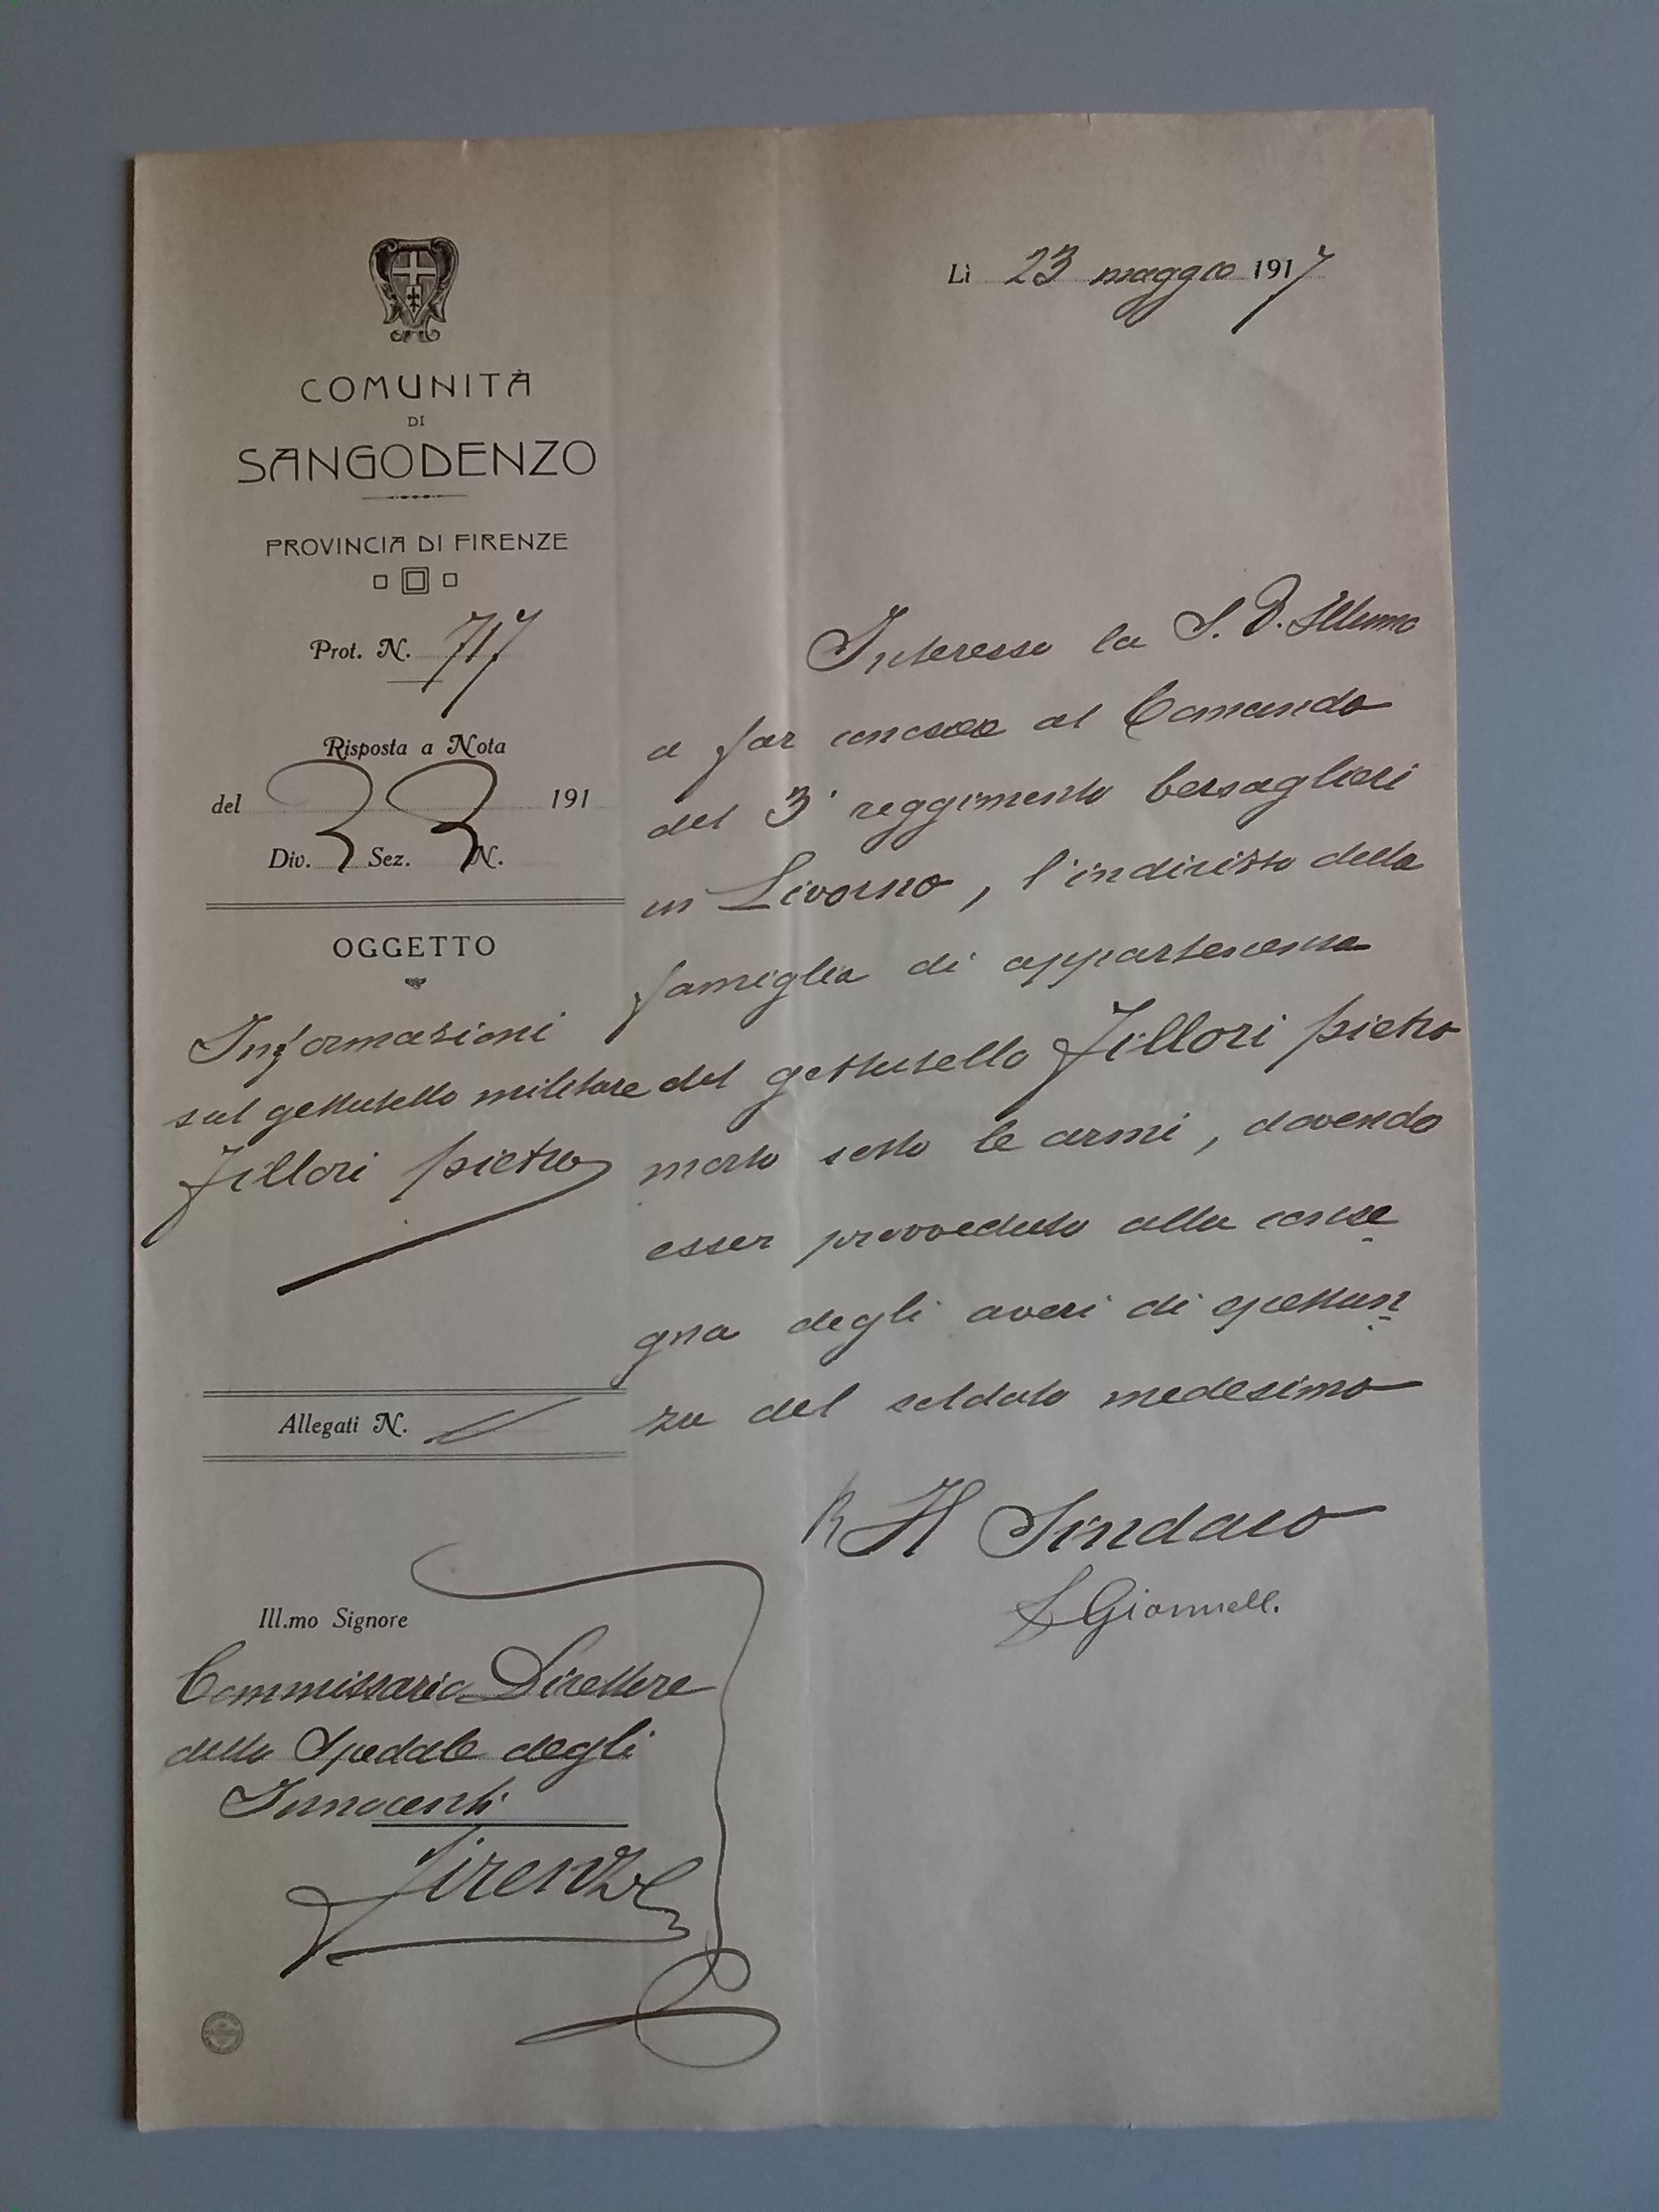 COMUNITÀ
DI
SANGODENZO
PROVINCIA DI FIRENZE
Prot. N. 717
Risposta a Nota
del 191
Div. Sez. N.
OGGETTO
Informazioni
sul gettatello militare
Fillori pietro
Allegati N.
Ill.mo Signore
Commissario Direttore
dello Spedale degli
Innocenti
Firenze
Lì 23 maggio 1917
Interesso la S. V. Illumo
a far conoscere al Comando
del 3° reggimento bersaglieri
in Livorno, l'indirizzo della
famiglia di appartenenza
del gettatello Fillori pietro
morto sotto le armi, dovendo
esser provveduto alla conse
gna degli averi di spettan
za del soldato medesimo
Il Sindaco
Giannell.